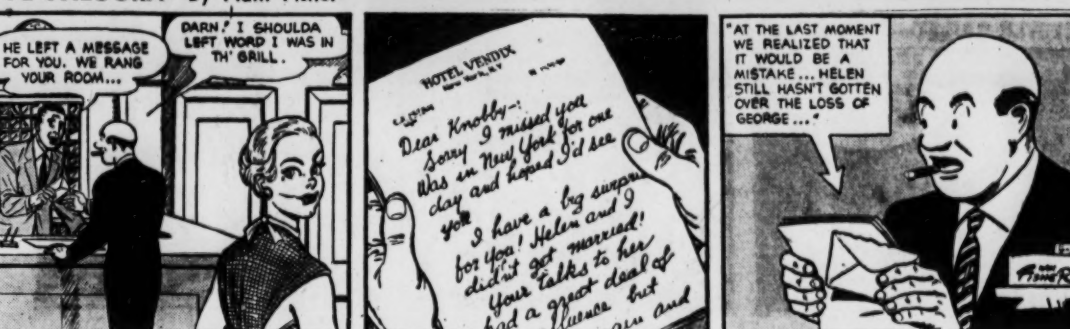 By
HE LEFT A MESSAGE
FOR YOU. WE RANG
YOUR ROOM...
DARN! I SHOULDA
LEFT WORD I WAS IN
TH' GRILL.
HOTEL VENDIX
New York, N.Y.
Dear Knobby-:
Sorry I missed you
Was in New York for one
day and hoped I'd see
you
I have a big surprise
for you! Helen and I
didn't get married!
Your talks to her
had a great deal of
but
and
"AT THE LAST MOMENT
WE REALIZED THAT
IT WOULD BE A
MISTAKE... HELEN
STILL HASN'T GOTTEN
OVER THE LOSS OF
GEORGE..."